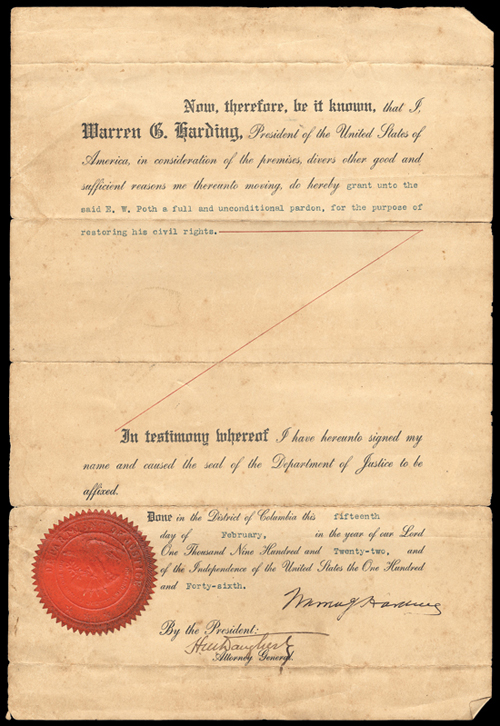 Now, therefore, be it known, that I,
Warren G. Harding, President of the United States of
America, in consideration of the premises, divers other good and
sufficient reasons me thereunto moving, do hereby grant unto the
said E. W. Poth a full and unconditional pardon, for the purpose of
restoring his civil rights.
In testimony whereof I have hereunto signed my
name and caused the seal of the Department of Justice to be
affixed.
Done in the District of Columbia this fifteenth
day of February, in the year of our Lord
One Thousand Nine Hundred and Twenty-two, and
of the Independence of the United States the One Hundred
and Forty-sixth.
Warren G Harding
By the President:
H M Daugherty
Attorney General.